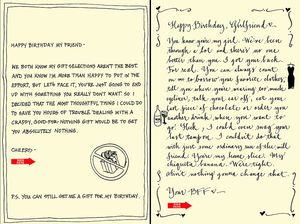 HAPPY BIRTHDAY MY FRIEND -
WE BOTH KNOW MY GIFT SELECTIONS AREN'T THE BEST
AND YOU KNOW I'M MORE THAN HAPPY TO PUT IN THE
EFFORT, BUT LET'S FACE IT, YOU'RE JUST GOING TO END
UP WITH SOMETHING YOU REALLY DON'T WANT! SO I
DECIDED THAT THE MOST THOUGHTFUL THING I COULD DO
TO SAVE YOU HOURS OF TROUBLE DEALING WITH A
CRAPPY, GOOD-FOR-NOTHING GIFT WOULD BE TO GET
YOU ABSOLUTELY NOTHING.
CHEERS -
P.S. YOU CAN STILL GET ME A GIFT FOR MY BIRTHDAY.
Happy Birthday, Girlfriend
You know you're my girl. We've been
through a lot and there's no one
better than you. I got your back.
For real. You can always count
on me to borrow your favorite clothes,
tell you when you're wearing too much
eyeliner, talk your ear off, eat your
last piece of chocolate or order you
another drink when you want to
go! Heck, I could even swag your
last tampon. I couldn't do that
with just some ordinary run of the mill
friend. You're my home slice. My
chiquita banana. We're tight.
Ain't nothing gonna change that.
Your BFF